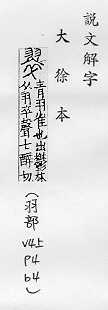 說文解字
大徐本
翠 青羽雀也出鬱林
从羽卒聲七醉切
(羽部
V4上
P4
b4)